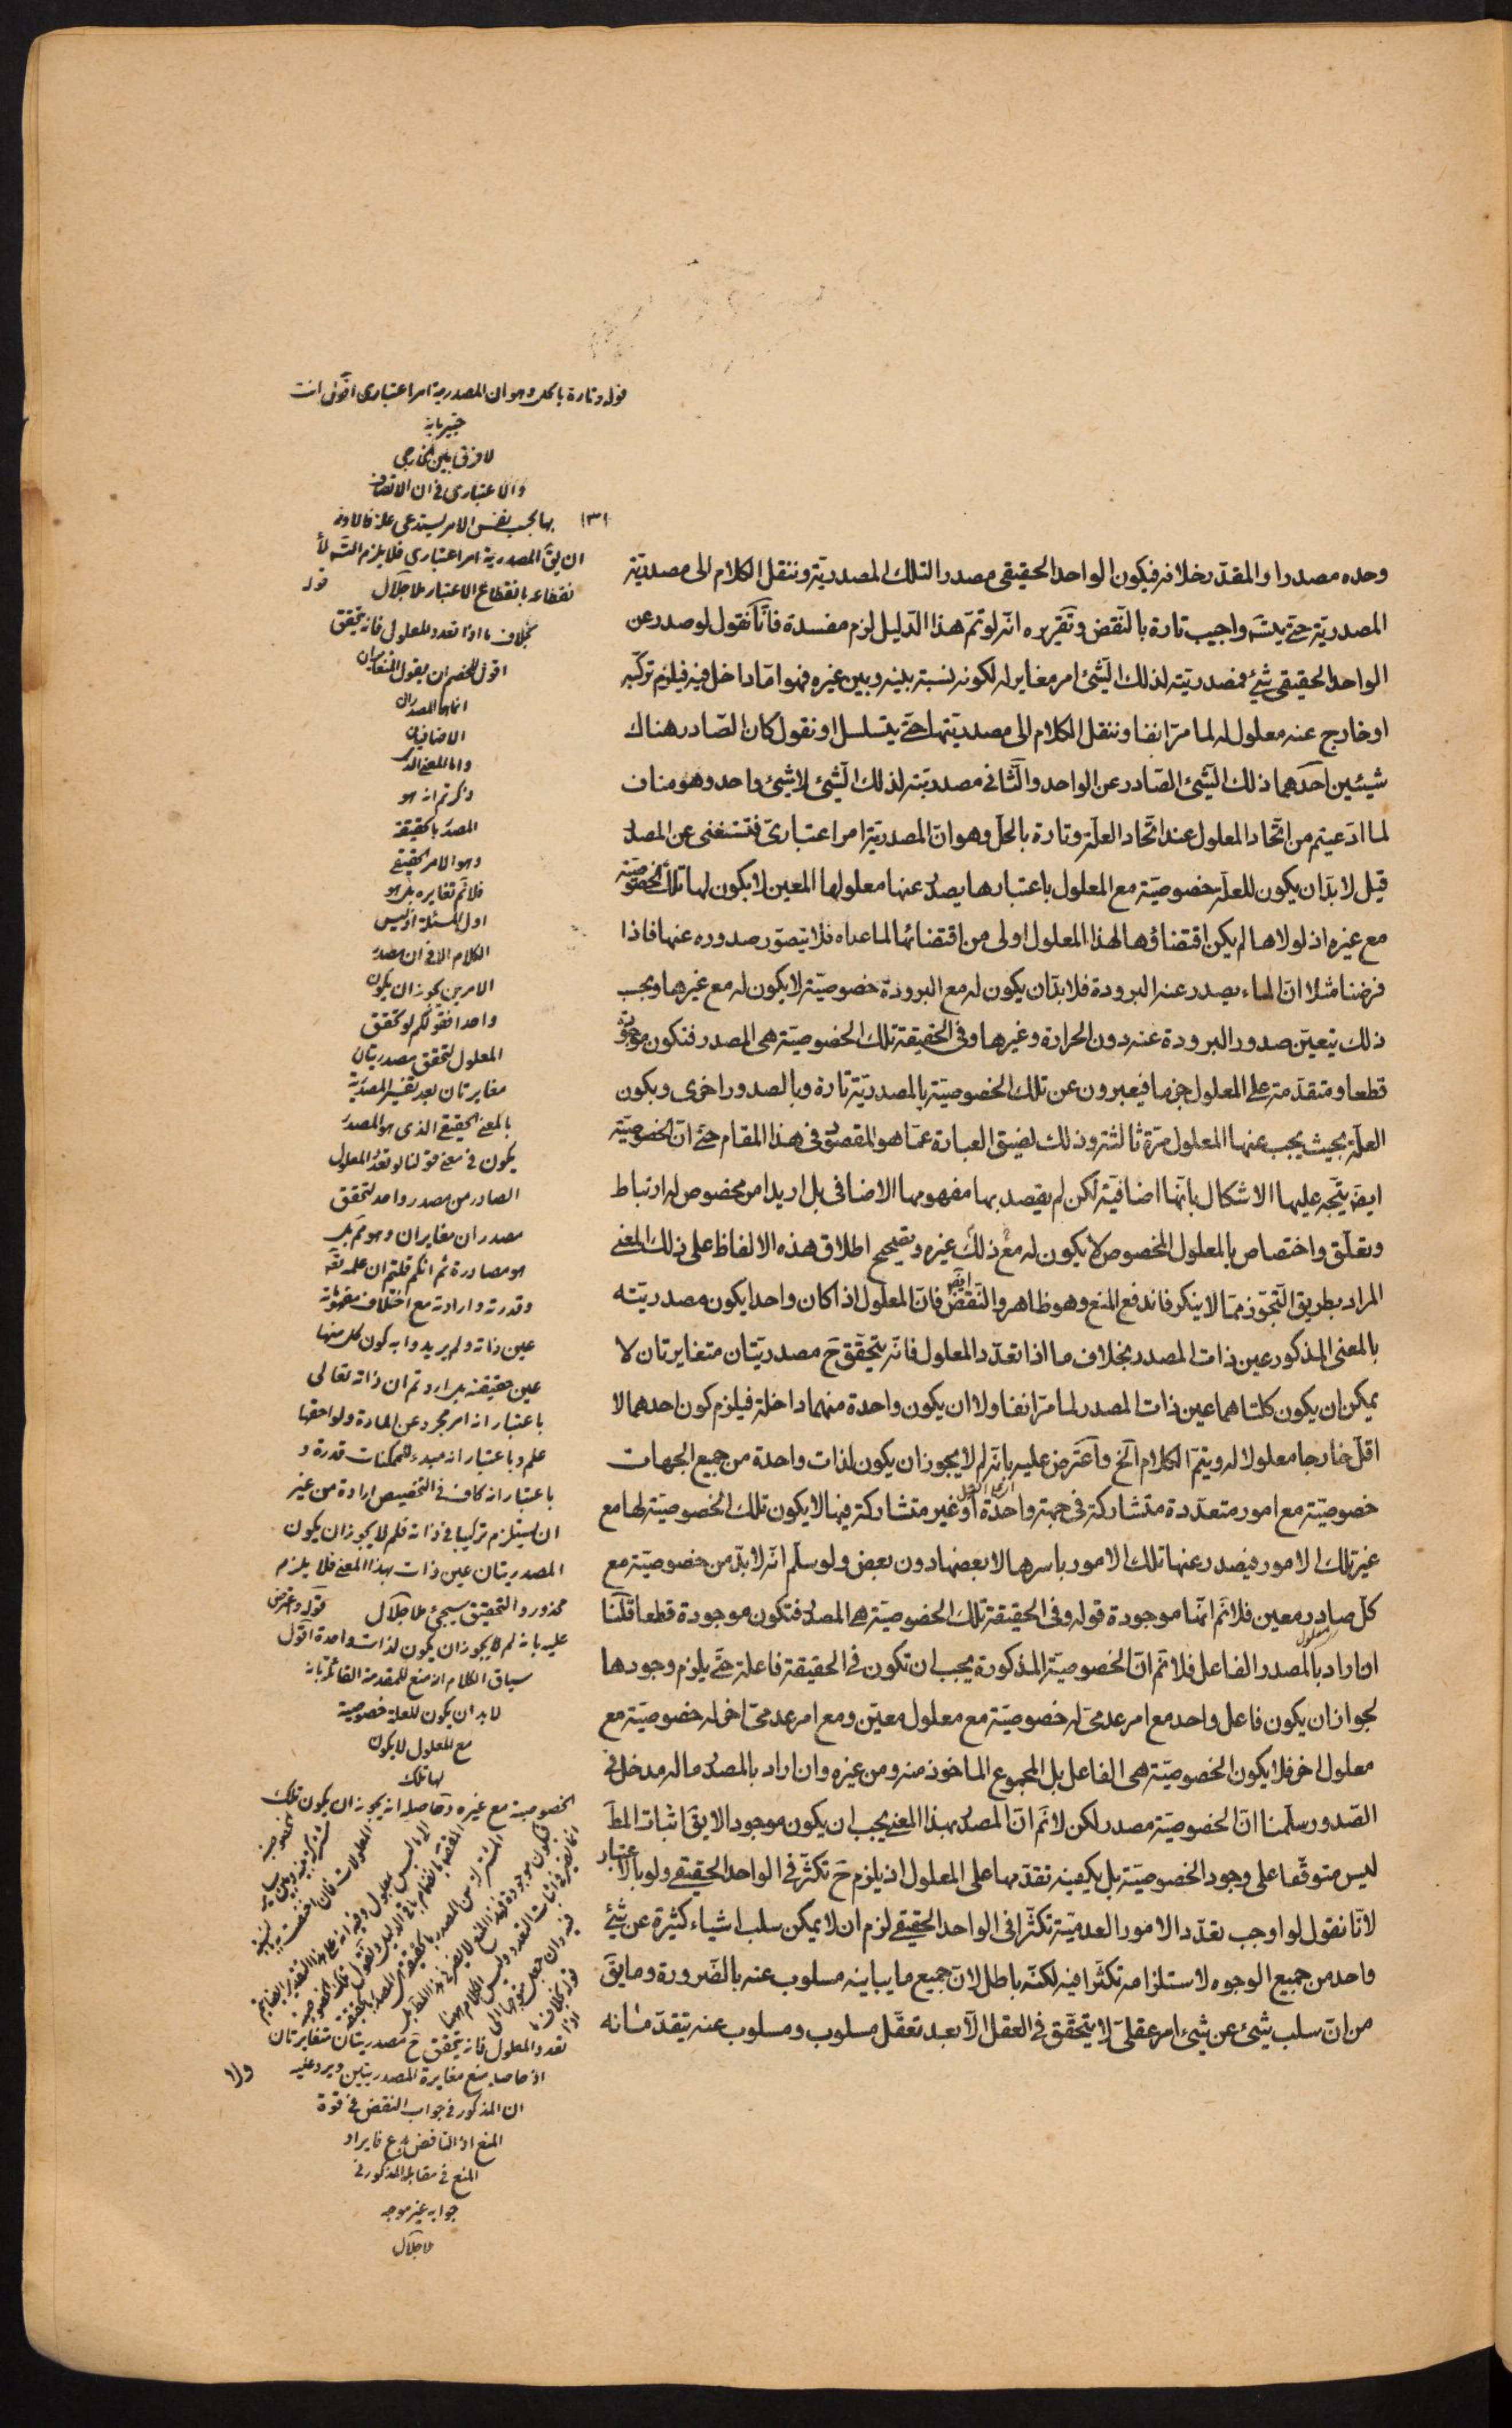 وحده مصدرا والمقدر خلافه فيكون الواحد الحقيقى مصدرا لتلك المصدريّة وننقل الكلام الى مصدريّة
المصدريّة حتّى يتسَه واجيب تارة بالنّقض وتقريره انّه لو تمّ هذا الدّليل لزم مفسدة فانّا نقول لو صدر عن
الواحد الحقيقى شئ فمصدريّته لذلك الشّئ امر مغاير له لكونه نسبة بينه وبين غيره فهو امّا داخل فيه فيلزم تركّبه
او خارج عنه معلول له لما مرّ انفا وننقل الكلام الى مصدريّتها حتّى يتسلسل او نقول كان الصّادر هناك
شيئين احدهما ذلك الشّئ الصّادر عن الواحد والثّانى مصدريّته لذلك الشّئ لا شئ واحد وهو مناف
لما ادّعيتم من اتّحاد المعلول عند اتّحاد العلّة وتارة بالحلّ وهو انّ المصدريّة امر اعتبارىّ فتستغنى عن المصدر
قيل لا بدّ ان يكون للعلّة خصوصيّة مع المعلول باعتبارها يصدر عنها معلولها المعين لا يكون لها تلك الخصوصيّة
مع غيره اذ لولاها لم يكن اقتضاؤها لهذا المعلول اولى من اقتضائها لما عداه فلا يتصوّر صدوره عنها فاذا
فرضنا مثلا انّ الماء يصدر عنه البرودة فلا بدّ ان يكون له مع البرودة خصوصيّة لا يكون له مع غيرها وبحسب
ذلك يتعيّن صدور البرودة عنه دون الحرارة وغيرها وفى الحقيقة تلك الخصوصيّة هى المصدر فتكون موجودة
قطعا ومتقدّمة على المعلول جزما فيعبرون عن تلك الخصوصيّة بالمصدريّة تارة وبالصدور اخرى وبكون
العلّة بحيث يجب عنها المعلول مرّة ثالثة وذلك لضيق العبارة عمّا هو المقصود فى هذا المقام حتّى انّ الخصوصيّة
ايضَ يتّجه عليها الاشكال بانّها اضافيّة لكن لم يقصد بها مفهومها الاضافى بل اريد امر مخصوص له ارتباط
وتعلّق واختصاص بالمعلول المخصوص لا يكون له مع ذلك غيره وتصحيح اطلاق هذه الالفاظ على ذلك المعنى
المراد بطريق التّجوّز ممّا لا ينكر فاندفع المنع وهو ظاهر والنّقض ايضَ فانّ المعلول اذا كان واحدا يكون مصدريّته
بالمعنى المذكور عين ذات المصدر بخلاف ما اذا تعدّد المعلول فانّه يتحقّق حَ مصدريّتان متغايرتان لا
يمكن ان يكون كلتاهما عين ذات المصدر لما مرّ انفا ولا ان يكون واحدة منهما داخلة فيلزم كون احدهما لا
اقلّ خارجا معلولا له ويتمّ الكلام الَخ واعترض عليه بانّه لم لا يجوز ان يكون لذات واحدة من جميع الجهات
خصوصيّة مع امور متعدّدة متشاركة فى جهة واحدة او غير متشاركة فيها لا يكون تلك الخصوصيّة لها مع
غير تلك الامور فيصدر عنها تلك الامور باسرها لا بعضها دون بعض ولو سلّم انّه لا بدّ من خصوصيّة مع
كلّ صادر معين فلا نَم انّها موجودة قوله وفى الحقيقة تلك الخصوصيّة هى المصدر فتكون موجودة قطعا قلنا
ان اراد بالمصدر الفاعل فلا نَم انّ الخصوصيّة المذكورة يجب ان تكون فى الحقيقة فاعلة حتّى يلزم وجودها
لجواز ان يكون فاعل واحد مع امر عدمىّ له خصوصيّة مع معلول معيّن ومع امر عدمىّ اخر له خصوصيّة مع
معلول اخر فلا يكون الخصوصيّة هى الفاعل بل المجموع الماخوذ منه ومن غيره وان اراد بالمصدر ما له مدخل فى
الصّدور سلّمنا انّ الخصوصيّة مصدر لكن لا نَم انّ المصدر بهذا المعنى يجب ان يكون موجودا لا يقَ اثبات المطَ
ليس متوقّفا على وجود الخصوصيّة بل يكفينه تقدّمها على المعلول اذ يلزم حَ تكثّر فى الواحد الحقيقى ولو بالاعتبار
لانّا نقول لو اوجب تعدّد الامور العدميّة تكثّرا فى الواحد الحقيقى لزم ان لا يمكن سلب اشياء كثيرة عن شئ
واحد من جميع الوجوه لاستلزامه تكثّرا فيه لكنّه باطل لانّ جميع ما يباينه مسلوب عنه بالضّرورة وما يقَ
من انّ سلب شئ عن شئ امر عقلىّ لا يتحقّق فى العقل الّا بعد تعقّل مسلوب ومسلوب عنه يتقدّمانه
قوله وتارة بالحل وهو ان المصدرية امر اعتبارى اقول انت
خبير بانه
لا فرق بين الخارجى
والاعتبارى فى ان الاتصاف
بها بحسب نفس الامر يستدعى علة
١٣١
ان يقَ المصدرية امر اعتبارى فلا يلزم التسَه
انقطاعه بانقطاع الاعتبار ملا جلال قوله
بخلاف ما اذا تعدد المعلول فانه يتحقق
اقول للخصم ان يقول المتغايران
انما هما المصدران
الاضافيان
واما المعنى الذى
ذكرتم انه هو
المصدر بالحقيقة
وهو الامر الحقيقى
فلا نَم تغايره بل هو
اول المسئلة اذ ليس
الكلام الا فى ان مصدر
الامرين يجوز ان يكون
واحدا فقولكم لو تحقق
المعلول لتحقق مصدريتان
مغايرتان بعد تفسير المصدرية
بالمعنى الحقيقى الذى هو المصدر
يكون فى معنى قولنا لو تعدد المعلول
الصادر من مصدر واحد لتحقق
مصدران مغايران وهو مَم بل
هو مصادرة ثم انكم قلتم ان علمه تعَه
وقدرته وارادته مع اختلاف مفهوماته
عين ذاته ولم يريدوا به كون كل منها
عين حقيقته بل اردتم ان ذاته تعالى
باعتبار انه امر مجرد عن المادة ولواحقها
علم وباعتبار انه مبدء للممكنات قدرة و
باعتبار انه كاف فى التخصيص ارادة من غير
ان يستلزم تركيبا فى ذاته فلم لا يجوز ان يكون
المصدريتان عين ذات بهذا المعنى فلا يلزم
محذور والتحقيق سيجئ ملا جلال قوله واعترض
عليه بانه لم لا يجوز ان يكون لذات واحدة اقول
سياق الكلام انه منع للمقدمة القائلة بانه
لا بد ان يكون للعلة خصوصية
مع المعلول لا يكون
لها تلك
الخصوصية مع غيره وحاصله انه يجوز ان يكون تلك
تعدد المعلول فانه يتحقق حَ مصدريتان متغايرتان
اذ حاصله منع مغايرة المصدريتين ويرد عليه
ان المذكور فى جواب النقض فى قوة
المنع اذ الناقض مدع فايراد
المنع فى مقابلة المذكور فى
جوابه غير موجه
ملا جلال